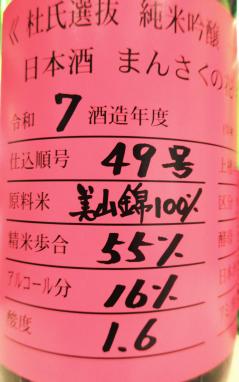 《 杜氏選抜 純米吟醸
日本酒 まんさくの花
令和 7 酒造年度
仕込順号 49号
原料米 美山錦100%
精米歩合 55%
アルコール分 16%
酸度 1.6
上
区分
酵母
日本